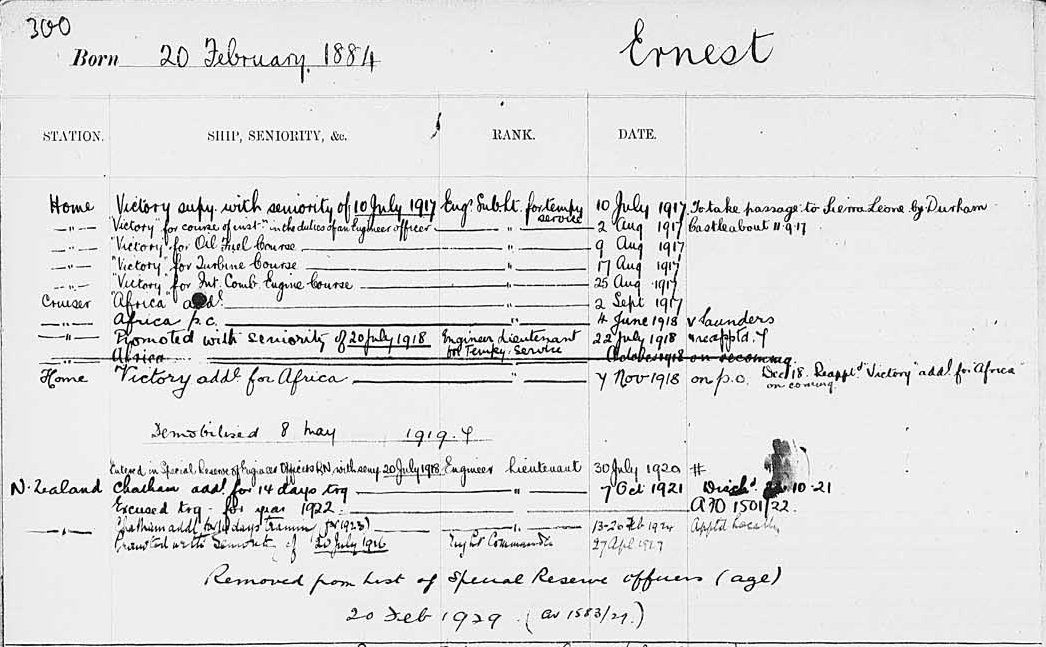 300
Born 20 February. 1884 Ernest
STATION. SHIP, SENIORITY, &c. RANK. DATE.
Home Victory supy. with seniority of 10 July 1917 Engr Sub. Lt. for tempy service 10 July 1917 To take passage to Sierra Leone by Durham
—"— "Victory" for course of inst. in the duties of an Engineer officer " 2 Aug 1917 Castle about 11.9.17
—"— "Victory" for Oil Fuel Course " 9 Aug 1917
—"— "Victory" for Turbine Course " 17 Aug 1917
—"— "Victory" for Int. Comb. Engine Course " 25 Aug 1917
Cruiser "Africa" addl. " 2 Sept 1917
—"— Africa p.c. " 4 June 1918 v Saunders
—"— Promoted with seniority of 20 July 1918 Engineer Lieutenant for Tempy. Service 22 July 1918 reapptd.
—"— Africa 1918 on recomng.
Home Victory addl. for Africa " 7 Nov 1918 on p.o. Dec 18. Reapptd "Victory" addl. for "Africa"
on coming.
Demobilised 8 May 1919.
Entered in Special Reserve of Engineer Officers RN, with seny. 20 July 1918 Engineer Lieutenant 30 July 1920 #
N. Zealand Chatham addl. for 14 days trg " 7 Oct 1921 Disch. 10-21
Excused trg. for year 1922. AFO 1501/22.
—"— Chatham addl. for days (for 1923) " 13-20 Feb 1924 Apptd locally
Promoted with Seniority of 20 July 1926 Commander 27 Apl 1927
Removed from List of Special Reserve officers (age)
20 Feb 1929. ( 1583/27.)